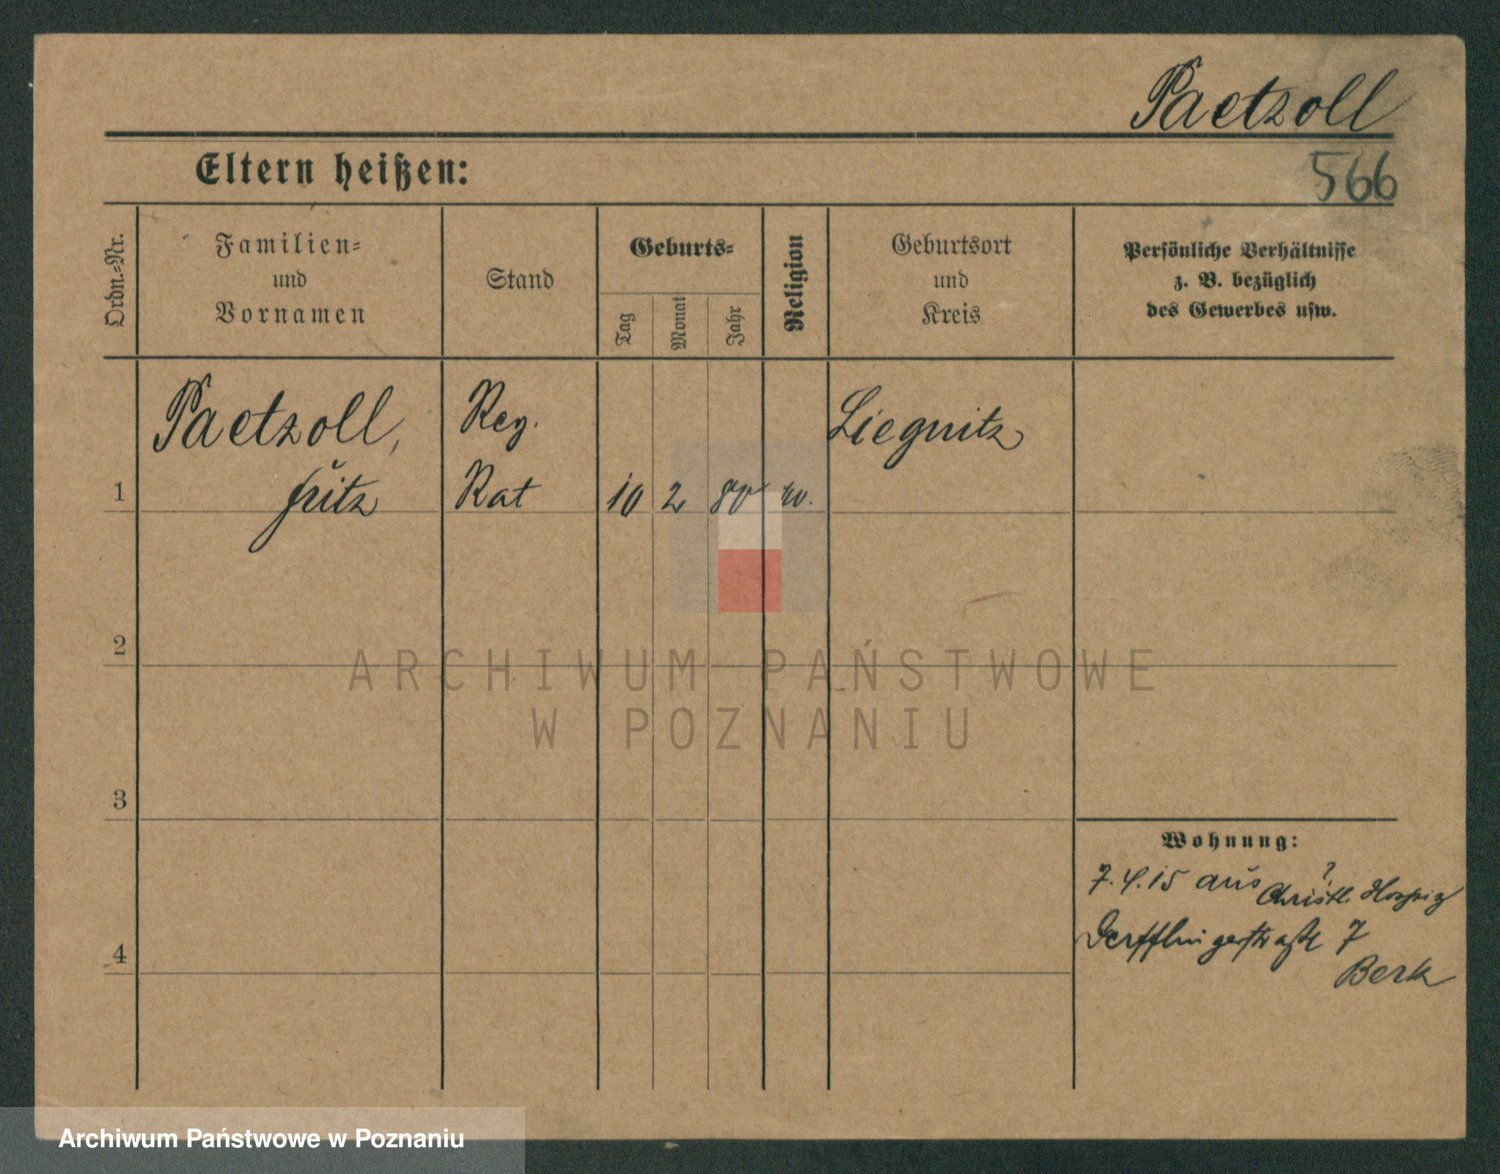 Paetzoll
Eltern heißen:
566
Ordn.=Nr.
Familien=
und
Vornamen
Stand
Geburts=
Tag
Monat
Jahr
Religion
Geburtsort
und
Kreis
Persönliche Verhältnisse
z. B. bezüglich
des Gewerbes usw.
Paetzoll,
Fritz
Reg.
Rat
10
2
80
ev.
Liegnitz
1
2
3
4
ARCHIWUM PAŃSTWOWE
W POZNANIU
Wohnung:
7.4.15 aus Christl. Hospiz
?
Derfflingerstraße 7
Berk
Archiwum Państwowe w Poznaniu